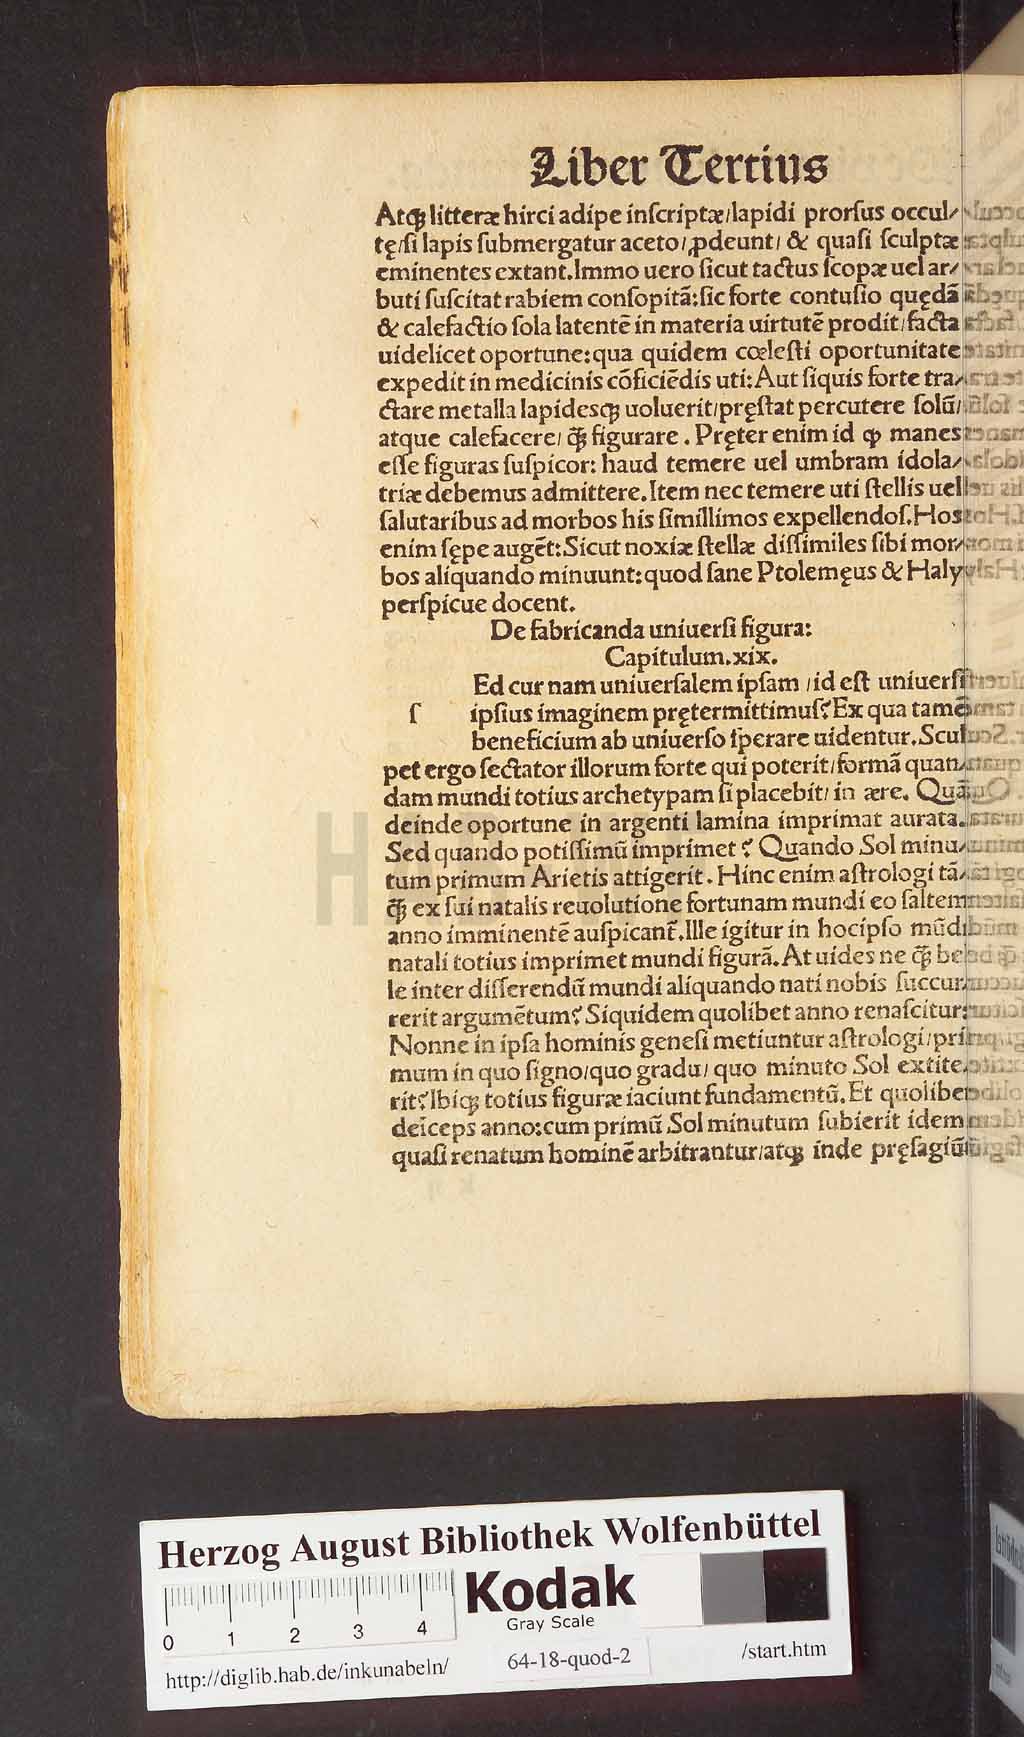 Liber Tertius
Atqꝫ litteræ hirci adipe inſcriptæ/lapidi prorſus occul/
tę/ſi lapis ſubmergatur aceto/ ꝓdeunt/ & quaſi ſculptæ
eminentes extant.Immo uero ſicut tactus ſcopæ uel ar/
buti ſuſcitat rabiem conſopitã:ſic forte contuſio quędã
& calefactio ſola latentẽ in materia uirtutẽ prodit/facta
uidelicet oportune:qua quidem cœleſti oportunitate
expedit in medicinis cõficiẽdis uti:Aut ſiquis forte tra/
ctare metalla lapidesqꝫ uoluerit/pręſtat percutere ſolũ/
atque calefacere/ q̃ꝫ figurare . Pręter enim id ꝙ manes
eſſe figuras ſuſpicor: haud temere uel umbram idola/
triæ debemus admittere.Item nec temere uti ſtellis uel
ſalutaribus ad morbos his ſimillimos expellendoſ.Hos
enim ſępe augẽt:Sicut noxiæ ſtellæ diſſimiles ſibi mor/
bos aliquando minuunt:quod ſane Ptolemęus & Haly
perſpicue docent.
De fabricanda uniuerſi figura:
Capitulum.xix.
Ed cur nam uniuerſalem ipſam /id eſt uniuerſi
ſ ipſius imaginem prętermittimuſ?Ex qua tamẽ
beneficium ab uniuerſo ſperare uidentur.Scul
pet ergo ſectator illorum forte qui poterit/formã quan/
dam mundi totius archetypam ſi placebit/ in ære. Quã
deinde oportune in argenti lamina imprimat aurata.
Sed quando potiſſimũ imprimet ? Quando Sol minu/
tum primum Arietis attigerit . Hinc enim aſtrologi tã/
q̃ꝫ ex ſui natalis reuolutione fortunam mundi eo ſaltem
anno imminentẽ auſpicant̃.Ille igitur in hocipſo mũdi
natali totius imprimet mundi figurã. At uides ne q̃ꝫ be
le inter diſſerendũ mundi aliquando nati nobis ſuccur/
rerit argumẽtum? Siquidem quolibet anno renaſcitur:
Nonne in ipſa hominis geneſi metiuntur aſtrologi/pri
mum in quo ſigno/quo gradu/ quo minuto Sol extite/
rit?Ibiqꝫ totius figuræ iaciunt fundamentũ. Et quolibet
deiceps anno:cum primũ Sol minutum ſubierit idem
quaſi renatum hominẽ arbitrantur/atqꝫ inde pręſagiũ
Herzog August Bibliothek Wolfenbüttel
Kodak
Gray Scale
0 1 2 3 4
http://diglib.hab.de/inkunabeln/ 64-18-quod-2 /start.htm